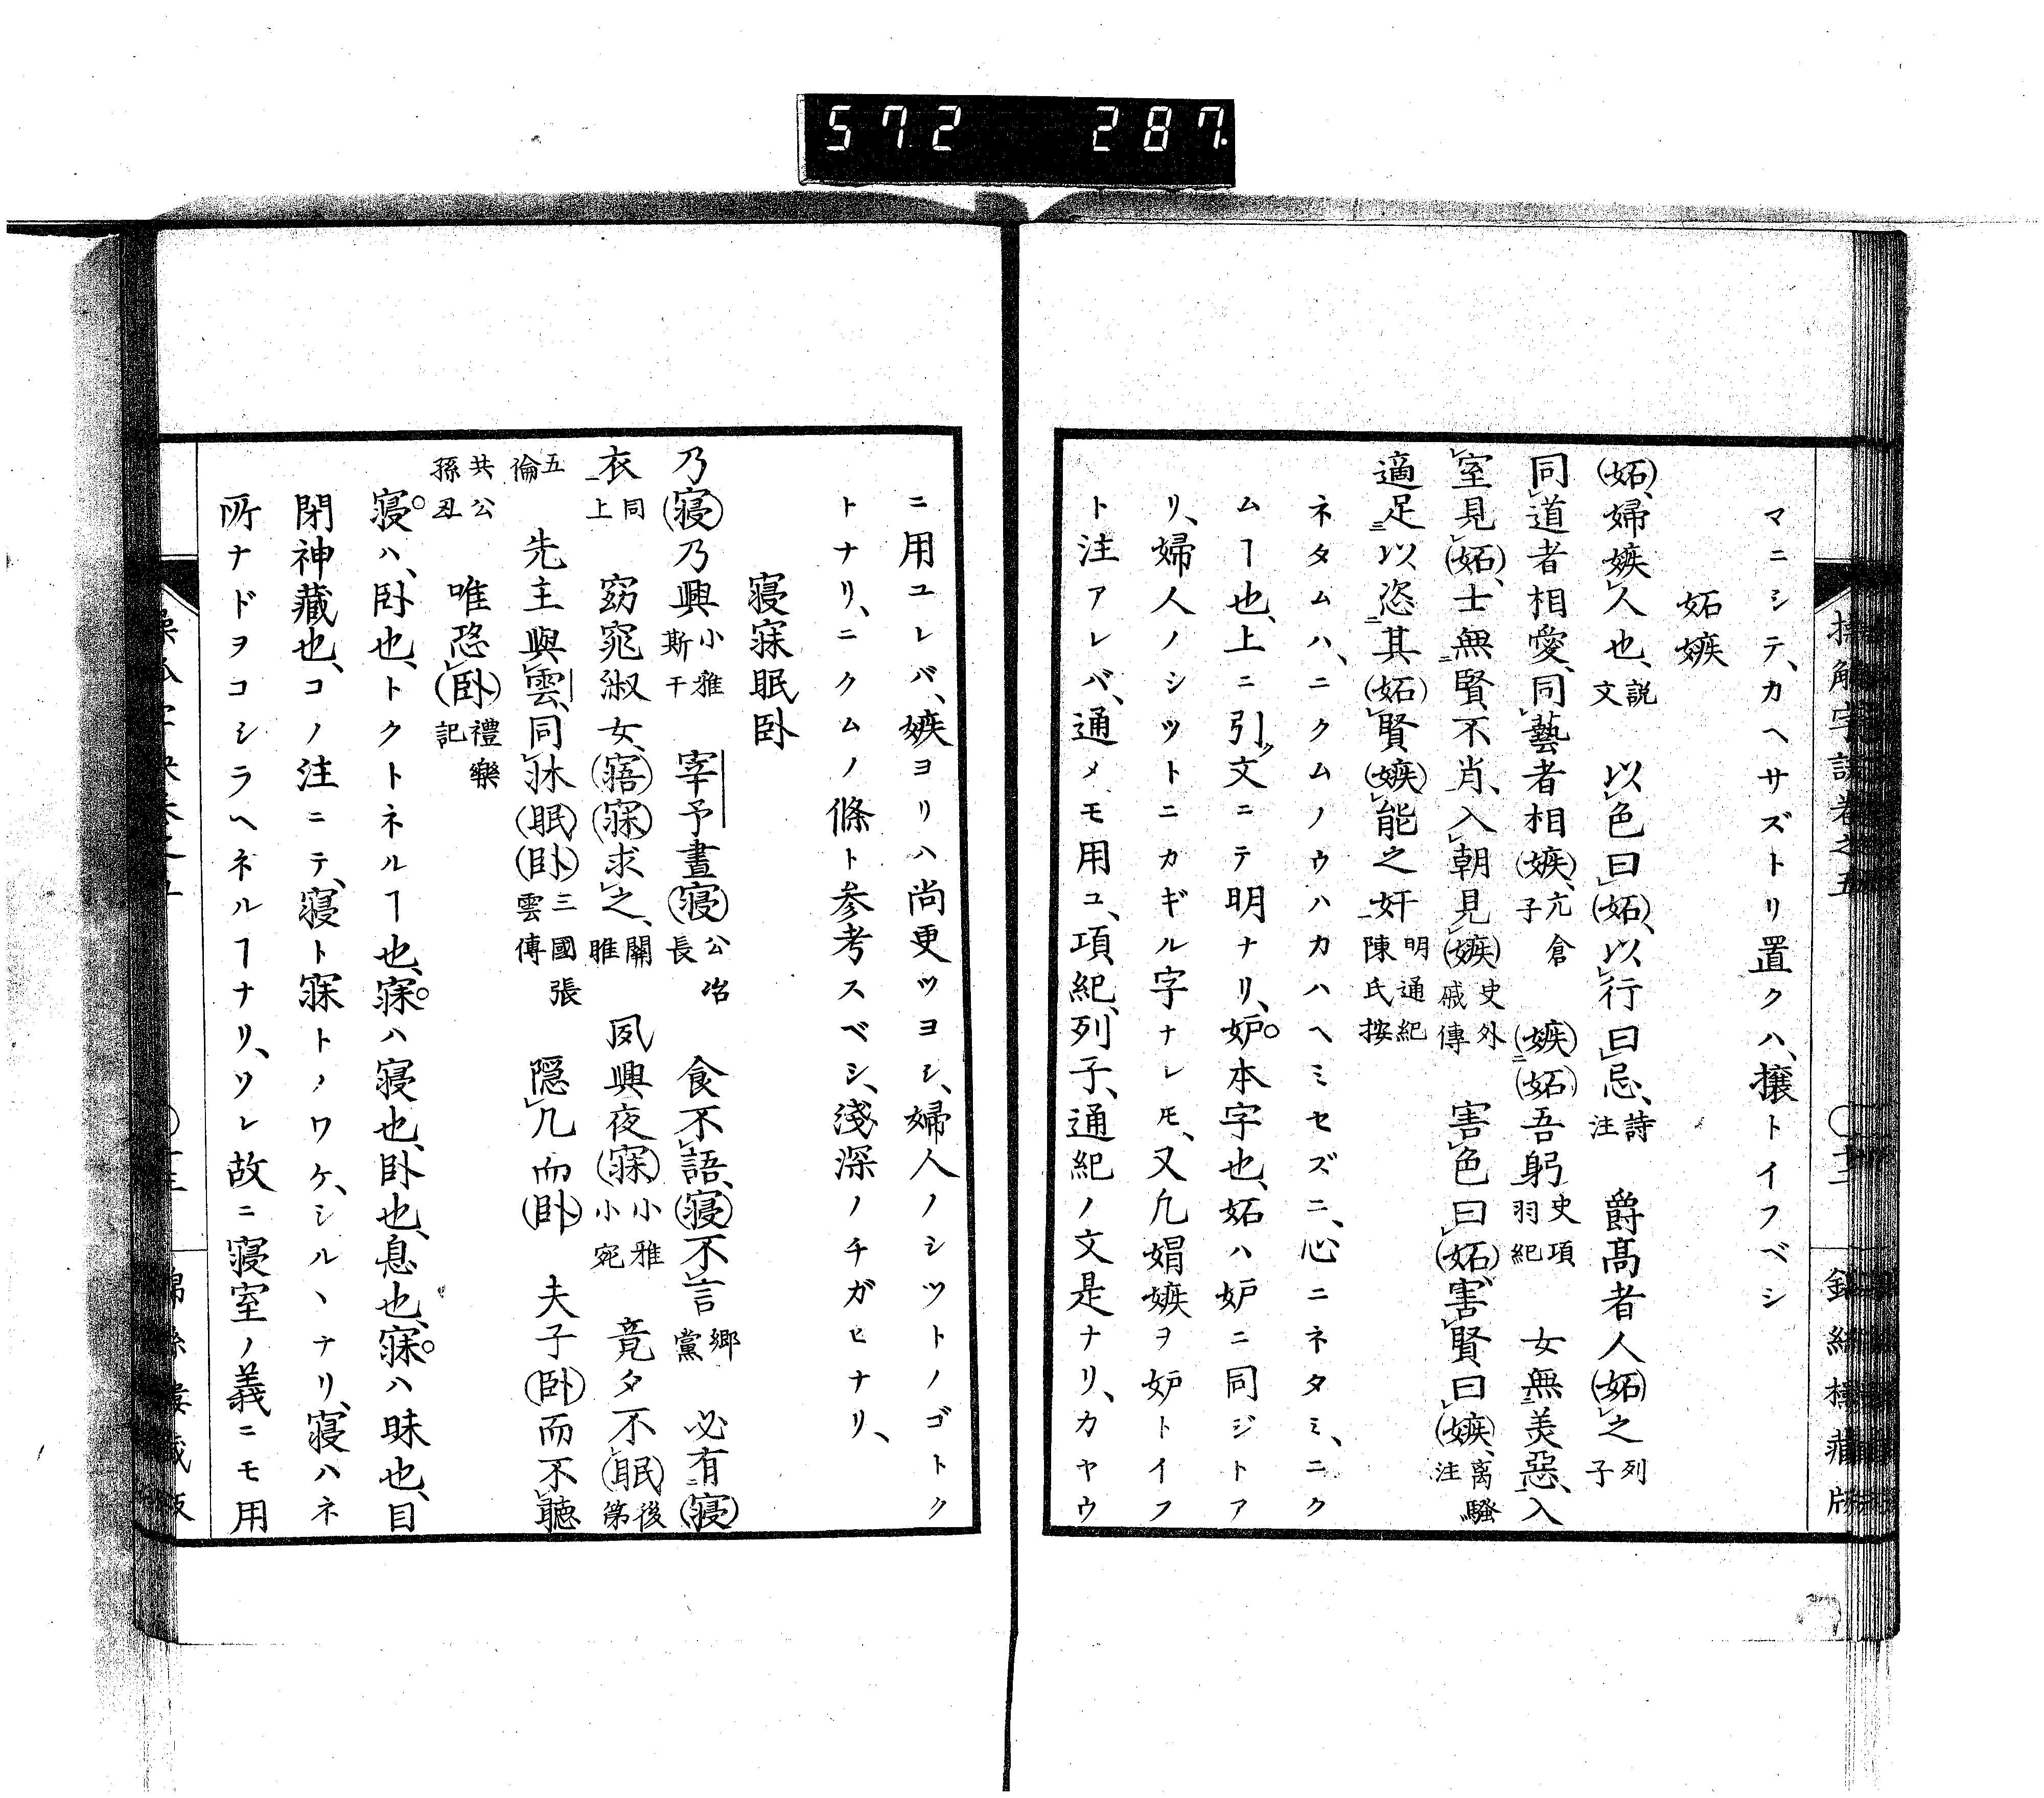 572 287
マニシテ、カヘサズトリ置クハ、攘トイフベシ
妬嫉
(妬)、婦嫉人也、説文 以色曰(妬)、以行曰忌、詩注 爵高者人(妬)之列子
同道者相愛、同藝者相(嫉)、亢倉子 (嫉)(妬)吾躬史項羽紀 女無美惡、入
室見(妬)、士無賢不肖、入朝見(嫉)史外戚傳 害色曰(妬)、害賢曰(嫉)、离騷注
適足以恣其(妬)賢(嫉)能之奸明通紀陳氏按
ネタムハ、ニクムノウハカハヘミセズニ、心ニネタミ、ニク
ムヿ也、上ニ引文ニテ明ナリ、妒本字也、妬ハ妒ニ同ジトア
リ、婦人ノシツトニカギル字ナレ𪜈、又凢娟嫉ヲ妒トイフ
ト注アレバ、通メモ用ユ、項紀、列子、通紀ノ文是ナリ、カヤウ
ニ用ユレバ、嫉ヨリハ尚更ツヨシ、婦人ノシツトノゴトク
トナリ、ニクムノ條ト参考スベシ、淺深ノチガヒナリ、
寝寐眠卧
乃(寝)乃興小雅斯干 宰予晝(寝)公冶長 食不語、(寝)不言郷黨 必有(寝)
衣同上 窈窕淑女、(寤)(寐)求之、關雎 夙興夜(寐)小雅小宛 竟夕不(眠)後第
五倫 先主與雲、同牀(眠)(卧)三國張雲傳 隠几而(卧) 夫子(卧)而不聽
共公孫丑 唯恐(卧)禮樂記
寝ハ、卧也、トクトネルヿ也、寐ハ寝也、卧也、息也、寐ハ昧也、目
閉神藏也、コノ注ニテ、寝ト寐トノワケ、シルヽナリ、寝ハネ
所ナドヲコシラヘネルヿナリ、ソレ故ニ寝室ノ義ニモ用